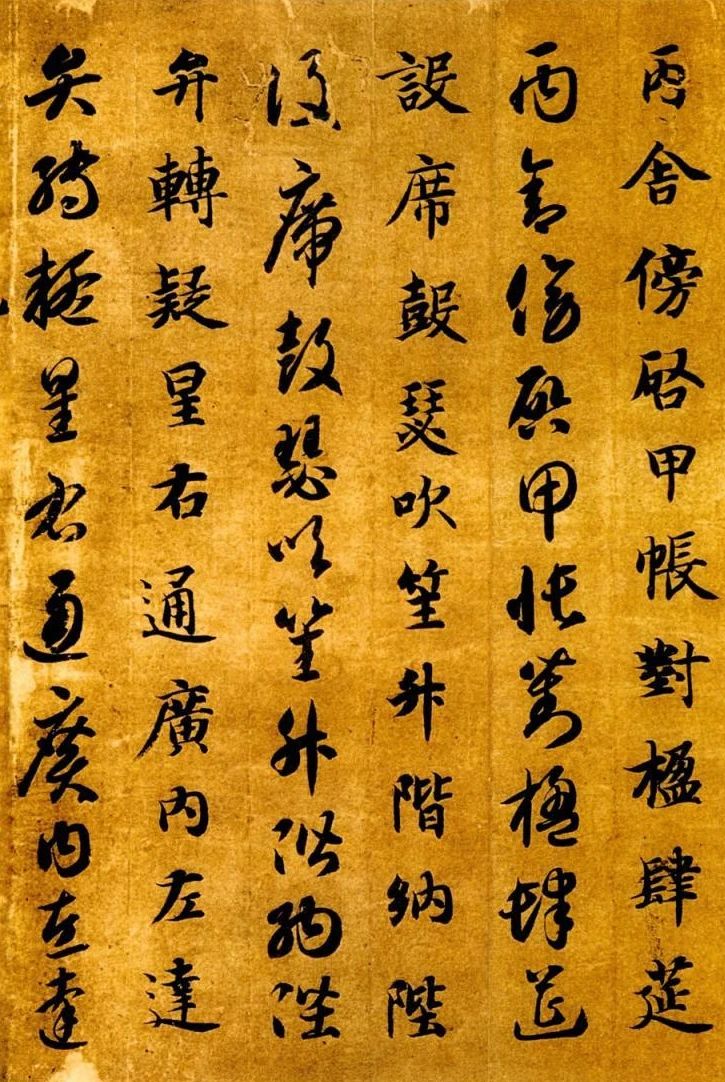 丙舍傍啓甲帳對楹肆莚
丙舍傍啓甲帳對楹肆莚
設席鼓瑟吹笙升階納陛
設席鼓瑟吹笙升階納陛
弁轉疑星右通廣內左達
弁轉疑星右通廣內左達